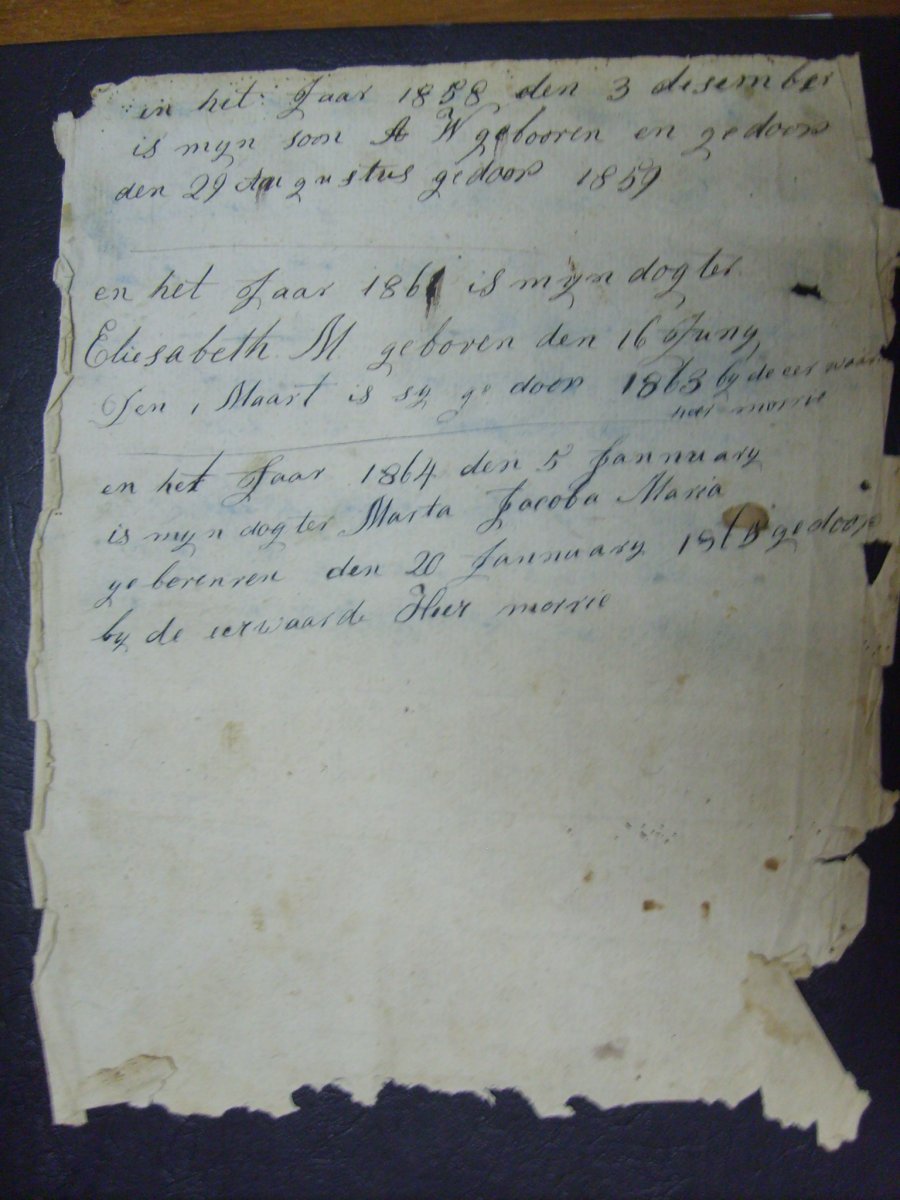 in het Jaar 1858 den 3 desember
is myn soon A W gebooren en gedoop
den 29 Augustus gedoop 1859
en het Jaar 1861 is myn dogter
Eliesabeth M geboren den 16 Juny
Den 1 Maart is sy ge doop 1863 by de eer waar
heer morrie
en het Jaar 1864 den 5 Jannuary
is myn dogter Marta Jacoba Maria
geberenren den 20 Jannuary gedoop
by de eerwaarde Heer morrie